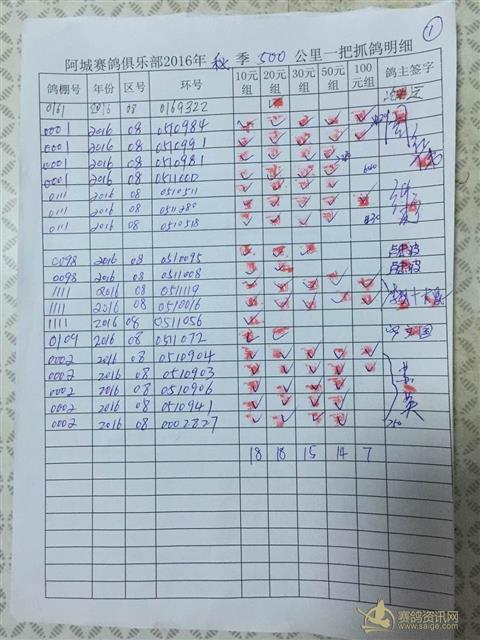 ①
阿城赛鸽俱乐部2016年 秋 季 500 公里一把抓鸽明细
鸽棚号 年份 区号 环号 10元组 20元组 30元组 50元组 100元组 鸽主签字
0161 2016 08 0169322
0001 2016 08 0510984 ✓ ✓ ✓ ✓ ✓
0001 2016 08 0510991 ✓ ✓ ✓ ✓
0001 2016 08 0510981 ✓ ✓ ✓ ✓
0001 2016 08 0511000 ✓ ✓ ✓ ✓
0111 2016 08 0510511 ✓ ✓ ✓ ✓
0111 2016 08 0511280 ✓ ✓ ✓ ✓
0111 2016 08 0510518 ✓ ✓ ✓ ✓
0098 2016 08 0510095 ✓ ✓ ✓
0098 2016 08 0511008 ✓ ✓
1111 2016 08 0511119 ✓ ✓ ✓ ✓ ✓
1111 2016 08 0510016 ✓ ✓ ✓ ✓ ✓
1111 2016 08 0511056 ✓
0109 2016 08 0511072 ✓ ✓
0002 2016 08 0510904 ✓ ✓ ✓ ✓ ✓
0002 2016 08 0510903 ✓ ✓ ✓ ✓ ✓
0002 2016 08 0510906 ✓ ✓ ✓ ✓
0002 2016 08 0510941 ✓ ✓ ✓ ✓
0002 2016 08 0002827 ✓ ✓ ✓ ✓
250
18 18 15 14 7
赛鸽资讯网
www.saige.com